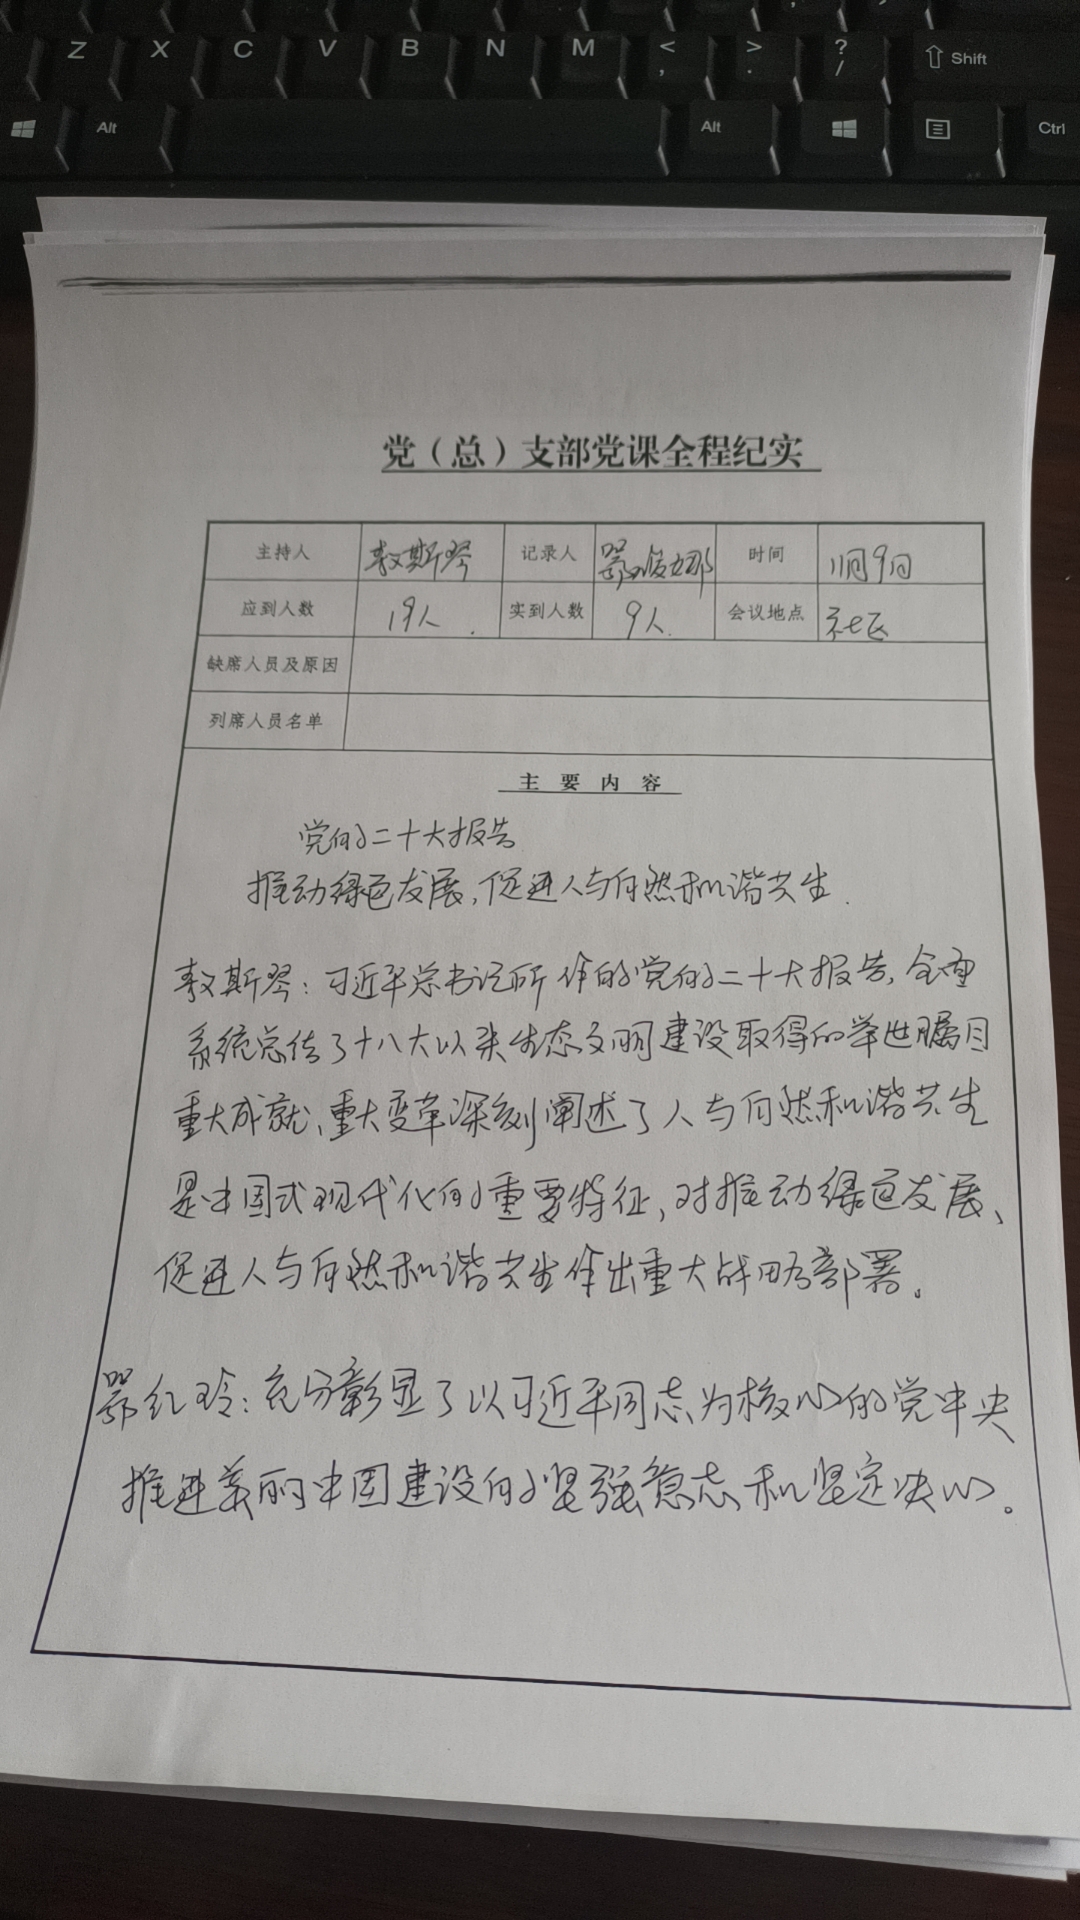 Z X C V B N M < , > . ? / Shift
Alt Alt Ctrl
党（总）支部党课全程纪实
主持人 敖斯琴 记录人 鄂俊娜 时间 11月9日
应到人数 19人. 实到人数 9人. 会议地点 社区
缺席人员及原因
列席人员名单
主要内容
党的二十大报告
推动绿色发展,促进人与自然和谐共生.
敖斯琴:习近平总书记所作的党的二十大报告,全面
系统总结了十八大以来生态文明建设取得的举世瞩目
重大成就、重大变革深刻阐述了人与自然和谐共生
是中国式现代化的重要特征,对推动绿色发展、
促进人与自然和谐共生作出重大战略部署。
鄂红玲:充分彰显了以习近平同志为核心的党中央
推进美丽中国建设的坚强意志和坚定决心。